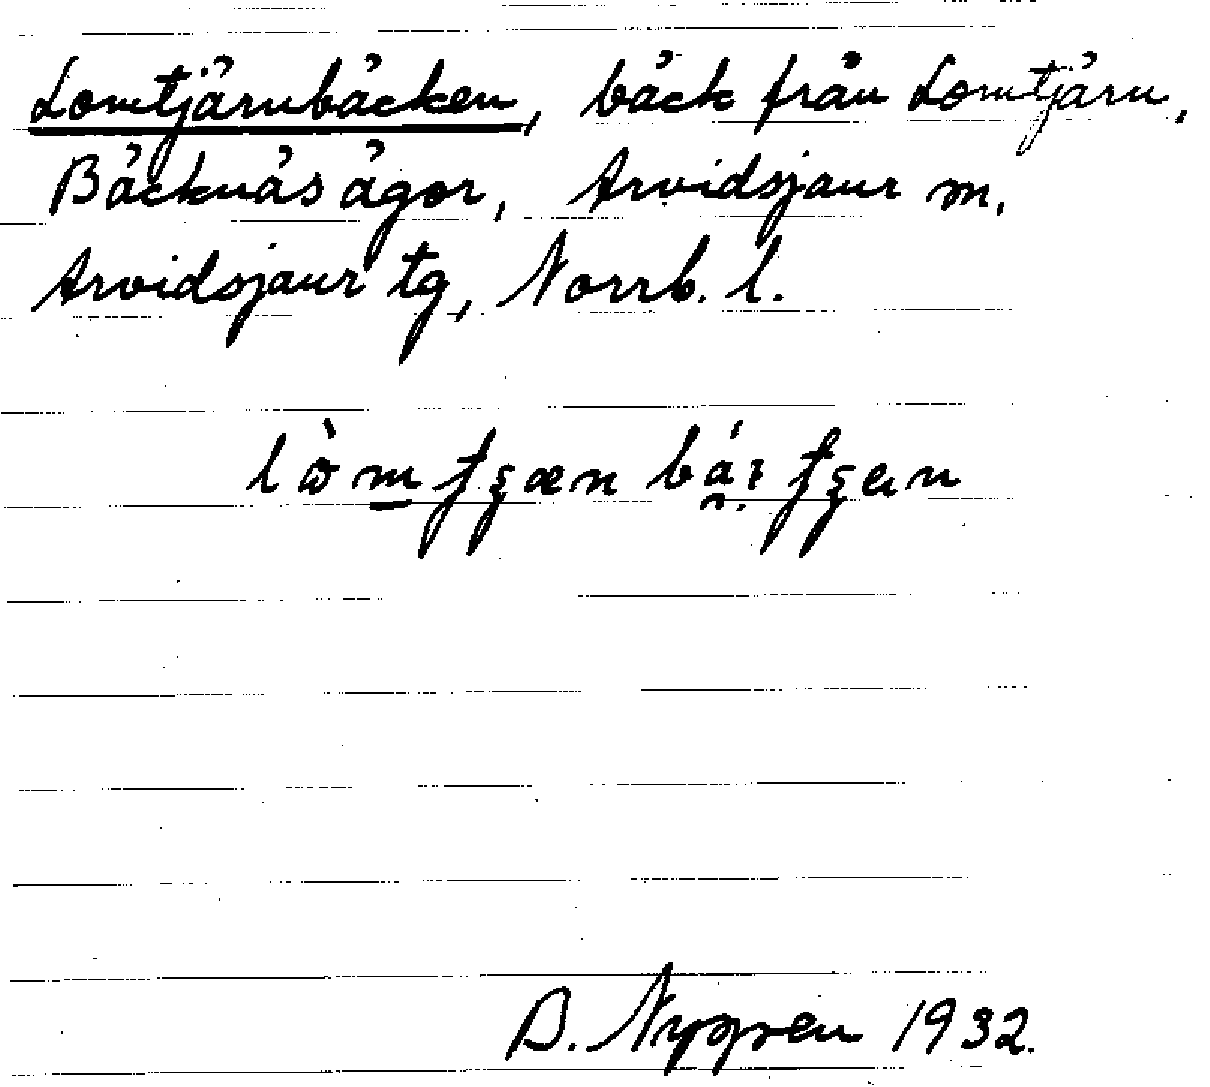 Lomtjärnbäcken, bäck från Lomtjärn,
Bäcknäs ägor, Arvidsjaur m,
Arvidsjaur tg, Norrb. l.
B. Nygren 1932.